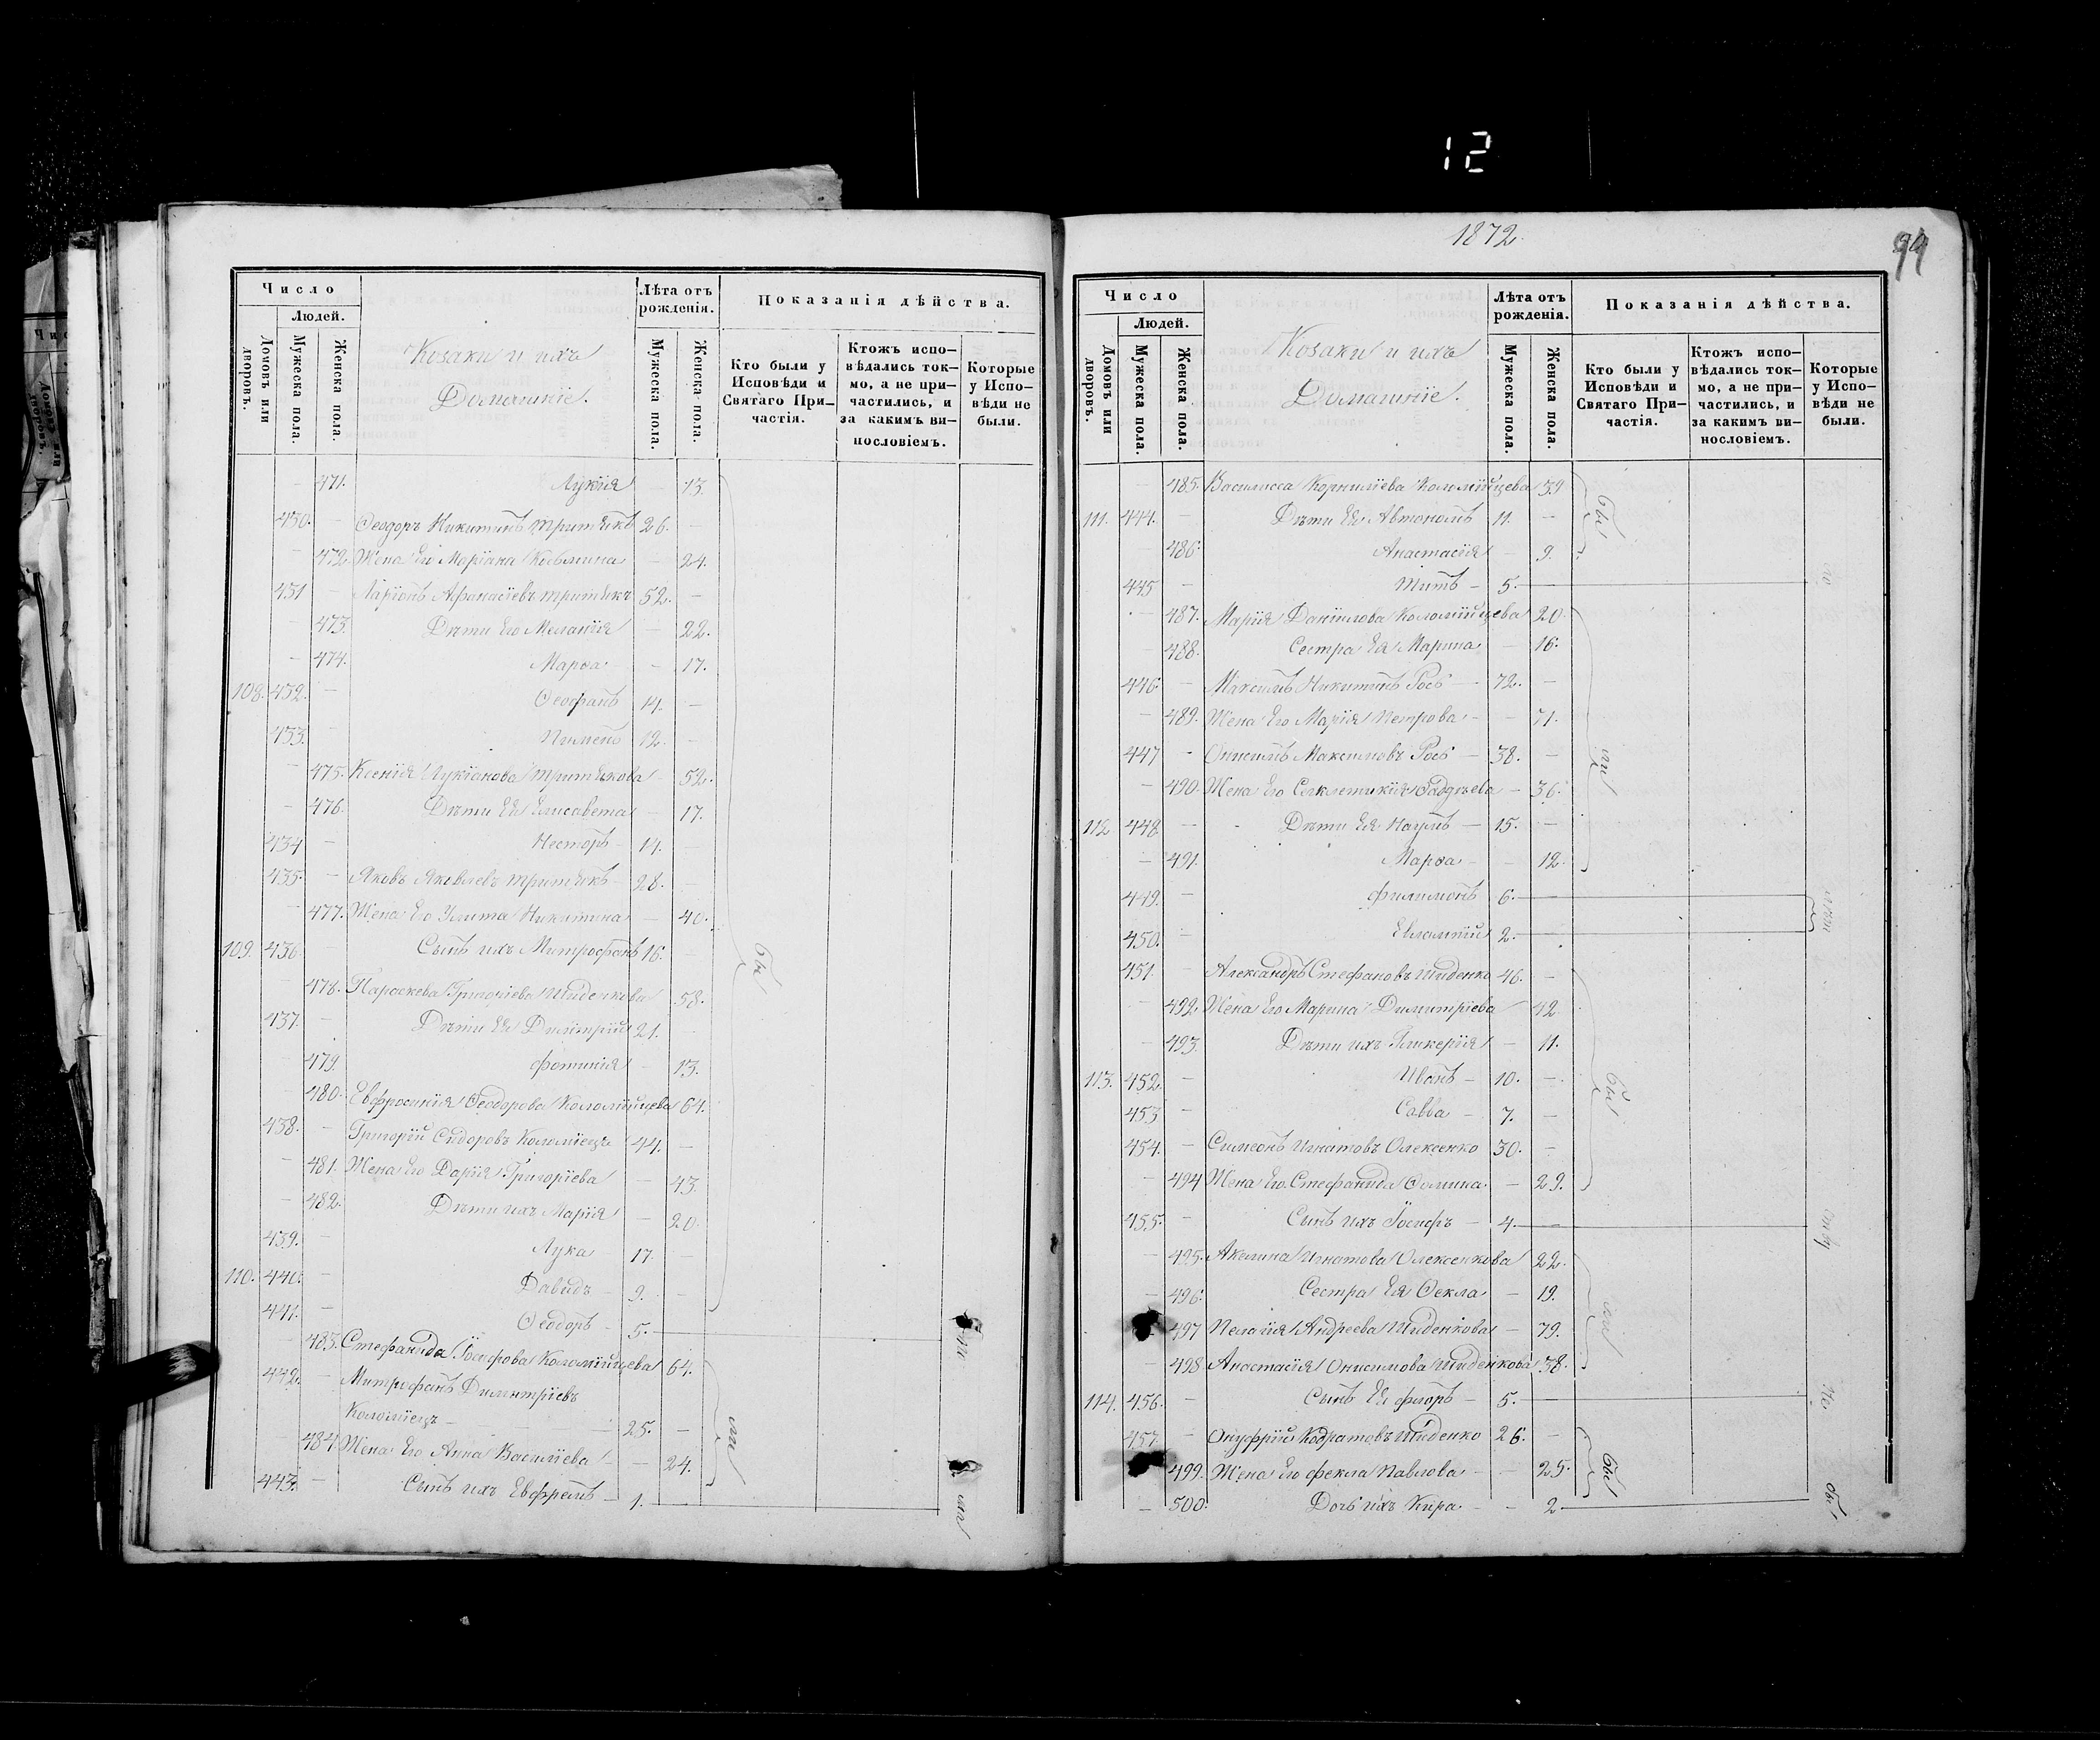 12
Число
Людей.
Домовъ или дворовъ.
Мужеска пола.
Женска пола.
Козаки и ихъ
Домашніе.
Лѣта отъ рожденія.
Мужеска пола.
Женска пола.
Показанія дѣйства.
Кто были у Исповѣди и Святаго Причастія.
Ктожъ исповѣдались токмо, а не причастились, и за какимъ винословіемъ.
Которые у Исповѣди не были.
471. Лукія 13.
430. Ѳеодоръ Никитинъ 26.
472. Жена Его Маріана Косьмина 24.
431 Ларіонъ Афанасіевъ 52.
473. Дѣти Его Меланія 22.
474. Марѳа 17.
108. 432. Ѳеофанъ 14.
433. Пименъ 12.
475. Ксенія Лукіанова 52.
476. Дѣти Ея Елисавета 17.
434 Несторъ 14.
435. Яковъ Яковлевъ 28.
477. Жена Его Улита Никитина 40.
109. 436. Сынъ ихъ Митрофанъ 16.
478. Параскева Григоріева Шиденкова 58.
437. Дѣти Ея Димитрій 21.
479. Фотинія 13.
480. Евфросинія Ѳеодорова Коломійцева 64.
438. Григорій Сидоровъ Коломіецъ 44.
481. Жена Его Дарія Григоріева 43.
482. Дѣти ихъ Марія 20.
439. Лука 17.
110. 440. Давидъ 9.
441. Ѳеодоръ 5.
483. Стефанида Іосифова Коломійцева 64.
442. Митрофанъ Димитріевъ
Коломіецъ 25.
484. Жена Его Анна Василіева 24.
443. Сынъ ихъ Евфремъ 1.
бы
ли
1872.
Число
Людей.
Домовъ или дворовъ.
Мужеска пола.
Женска пола.
Козаки и ихъ
Домашніе.
Лѣта отъ рожденія.
Мужеска пола.
Женска пола.
Показанія дѣйства.
Кто были у Исповѣди и Святаго Причастія.
Ктожъ исповѣдались токмо, а не причастились, и за какимъ винословіемъ.
Которые у Исповѣди не были.
485. Василисса Корниліева Коломійцева 39
111. 444. Дѣти Ея Автономъ 11.
486. Анастасія 9.
445 Титъ 5.
487. Марія Даніилова Коломійцева 20.
488. Сестра Ея Марина 16.
446. Максимъ Никитинъ Рось 72.
489. Жена Его Марія Петрова 71.
447 Онисимъ Максимовъ Рось 38.
490. Жена Его Синклитикія Фаддѣева 36.
112 448. Дѣти Ея Наумъ 15.
491. Марѳа 12.
449. Филимонъ 6.
450. Евлампій 2.
451. Александръ Стефановъ Шиденко 46.
492. Жена Его Марина Димитріева 42
493. Дѣти ихъ Гликерія 11.
113. 452. Иванъ 10.
453 Савва 7.
454. Симеонъ Игнатовъ Олексенко 30.
494 Жена Его Стефанида Ѳомина 29.
455. Сынъ ихъ Іосифъ 4.
495. Акилина Игнатова Олексенкова 22.
496. Сестра Ея Ѳекла 19.
497 Пелагія Андреева Шиденкова 79.
498 Анастасія Онисимова Шиденкова 38.
114. 456. Сынъ Ея Флоръ 5.
457. Онуфрій Кодратовъ Шиденко 26.
499. Жена Его Фекла Павлова 25.
500. Дочь ихъ Кира 2
бы
ли
бы
ли
бы